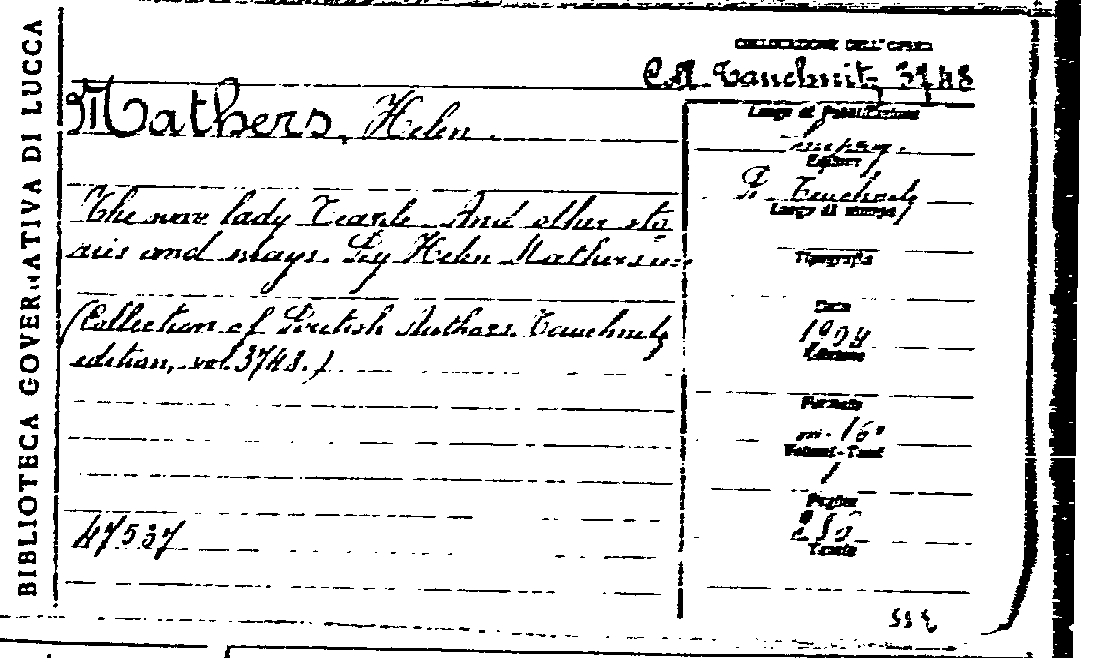 BIBLIOTECA GOVERNATIVA DI LUCCA
COLLOCAZIONE DELL'OPERA
C.A. Tauchnitz 3748
Mathers, Helen.
Luogo di Pubblicazione
Editore
B. Tauchnitz
Luogo di stampa
The new lady Teazle. And other sto
ries and essays. By Helen Mathers
Tipografia
(Collection of British Authors. Tauchnitz
edition, vol. 3748.)
Data
1904
Edizione
Formato
in-16°
Volumi-Tomi
1
Pagine
47537